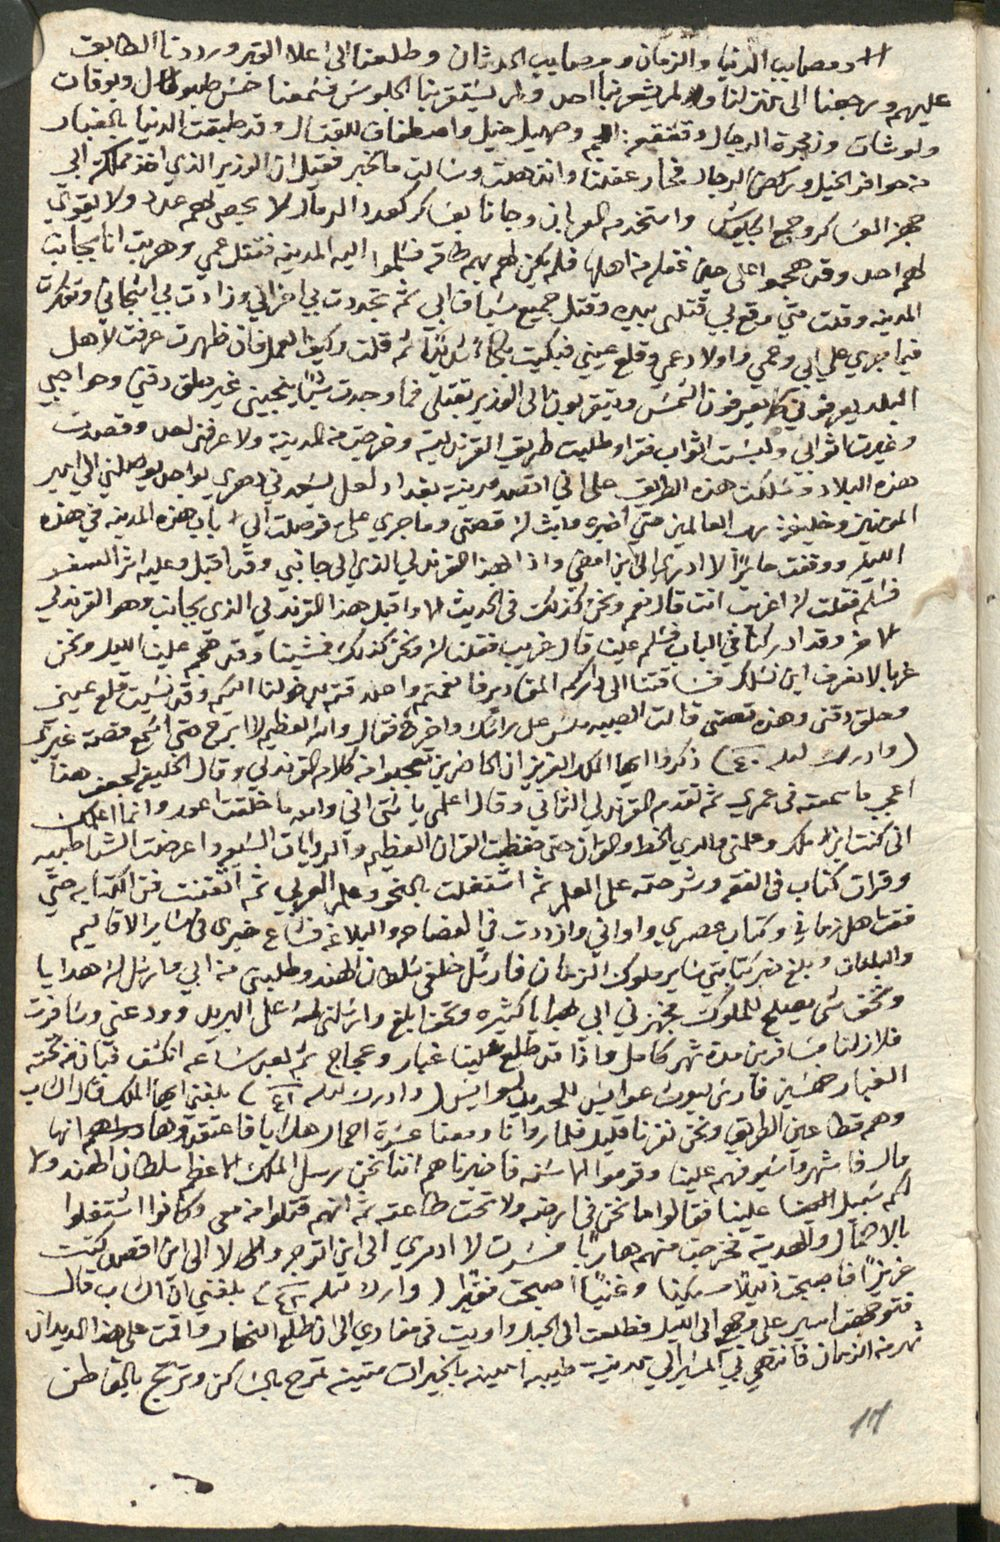 ومصايب الدنيا والزمان ومصايب الحدثان وطلعنا الى اعلا القبر ورددنا الطابق
عليهم ورجعنا الى منزلنا ولم يشعر بنا احد ولم يستقر بنا الجلوس فسمعنا حس طبول وبوقات
وزعجرة الرجال وقعقعة اللجم وصهيل خيل واصطفاف للقتال وقد طبقت الدنيا بالغبار
من حوافر الخيل وركض الرجال فحار عقلنا واندهلت وسالت ما الخبر فقيل ان الوزير الذي اخذ مملكة ابي
جهز العساكر وجمع الجيوش واستخدم العربان وجانا بعساكر كعدد الرمال لا يحصى لهم عدد ولا يقوي
لهم احد وقد هجموا على حين غفله من اهلها فلم يكن لهم بهم طاقة فسلموا اليه المدينه فقتل عمي وهربت انا بجانب
المدينه وقلت متي وقع بي قتلني بيده وقتل جميع سياف ابي ثم تجددت بي احزاني وزادت بي اشجاني وتفكرت
فيما جري علي ابي وعمي واولاد عمي وقلع عيني فبكيت بكا شديدا ثم قلت وكيف العمل فان ظهرت عرفت لاهل
البلد يعرفوني كما يعرفون الشمس ويتقربون الى الوزير بقتلي فما وجدت شيا ينجيني غير حلق دقني وحواجبي
وغيرت اثوابي ولبست اثواب فقرا وطلبت طريق القرندلية وخرجت من المدينة ولا عرفني احد وقصدت
هذه البلاد وسلكت هذه الطريق على اني اقصد مدينة بغداد لعل يسعدني دهري بواحد يوصلني الي امير
المومنين وخليفة رب العالمين حتي اخبره وابث له قصتي وما جري علي فوصلت الى باب هذه المدينه في هذه
الليلة ووقفت حايرا لا ادري الى اين امضي واذا بهذا القرندلي الذي الى جانبي وقد اقبل وعليه اثر السفر
فسلم فقلت له اغريب انت قال نعم ونحن كذلك في الحديث الا واقبل هذا القرندلي الذي بجانب وهو القرندلي
الاخر وقد ادركنا في الباب فسلم علينا قال غريب فقلنا له ونحن كذلك فمشينا وقد هجم علينا الليل ونحن
غربا لا نعرف اين نسلك فساقتنا الى داركم المقادير فانعمتم واحد قدتم بدخولنا اليكم وقد نسيت قلع عيني
وحلق دقني وهذه قصتي قالت الصبيه ملس على راسك واخرج فقال والله العظيم لا ابرح حتى اسمع قصة غيري
(وادرك ليله ٤٠) ذكروا ايها الملك العزيز ان الحاضرين تعجبوا من كلام القرندلي وقال الخليفه لجعفر هذا
اعجب ما سمعته في عمري ثم تقدم القرندلي الثاني وقال اعلمي يا ستي اني والله ما خلقت اعور وانما اعلمك
اني كنت ابن ملك وعلمني والدي الخط والقران حتى حفظت القران العظيم والروايات السبع واعرضت الشاطبيه
وقرات كتاب في الفقه وشرحته على العلما ثم اشتغلت بالنحو وعلم العربي ثم اتقنت فن الكتابه حتى
فقت اهل زماني وكتاب عصري واواني وازددت في الفصاحه والبلاغه فشاع خبري في ساير الاقاليم
والبلدان وبلغ خبر كتابتي ساير ملوك الزمان فارسل خلفي سلطان الهند وطلبني من ابي وارسل له هدايا
وتحف شي يصلح للملوك فجهزني ابي بهدايا كثيره وتحف وارسلني معه على البريد وودعني وسافرت
فلا زلنا مسافرين مدة شهر كامل واذا قد طلع علينا غبار وعجاج ثم بعد ساعه انكشف فبان من تحته
الغبار خمسين فارس ليوث عوابس للحديد لوابس (وادرك ليله ٤١) بلغني ايها الملك قال الشاب
وهم قطاعين الطريق ونحن نفرنا قليل فلما راونا ومعنا عشرة احمال هدايا فاعتقدوها انها
مال فاشهروا سيوفهم علينا وقوموا الاسنه فاخبرناهم اننا نحن رسل الملك الاعظم سلطان الهند ولا
لكم سبيل علينا فقالوا ما نحن في ارضه ولا تحت طاعته ثم انهم قتلوا من معي وكانوا اشتغلوا
بالاحمال والهدية فخرجت منهم هاربا فسرت لا ادري الى اين اتوجه ولا الى اين اقصد كنت
عزيزا فاصبحت ذليلا مسكينا وغنيا اصبحت فقيرا (وادرك ليله ٤٢) بلغني ان الشاب قال
فتوجهت اسير على وجهي الى الليل فطلعت الى الجبل واويت في مغارة الى ان طلع النهار واقمت على هذا الحال
شهر من الزمان فانتهي بي المسير الى مدينة طيبه امينه بالخيرات متينه تمرح بالساكن وترتج بالقاطن
17